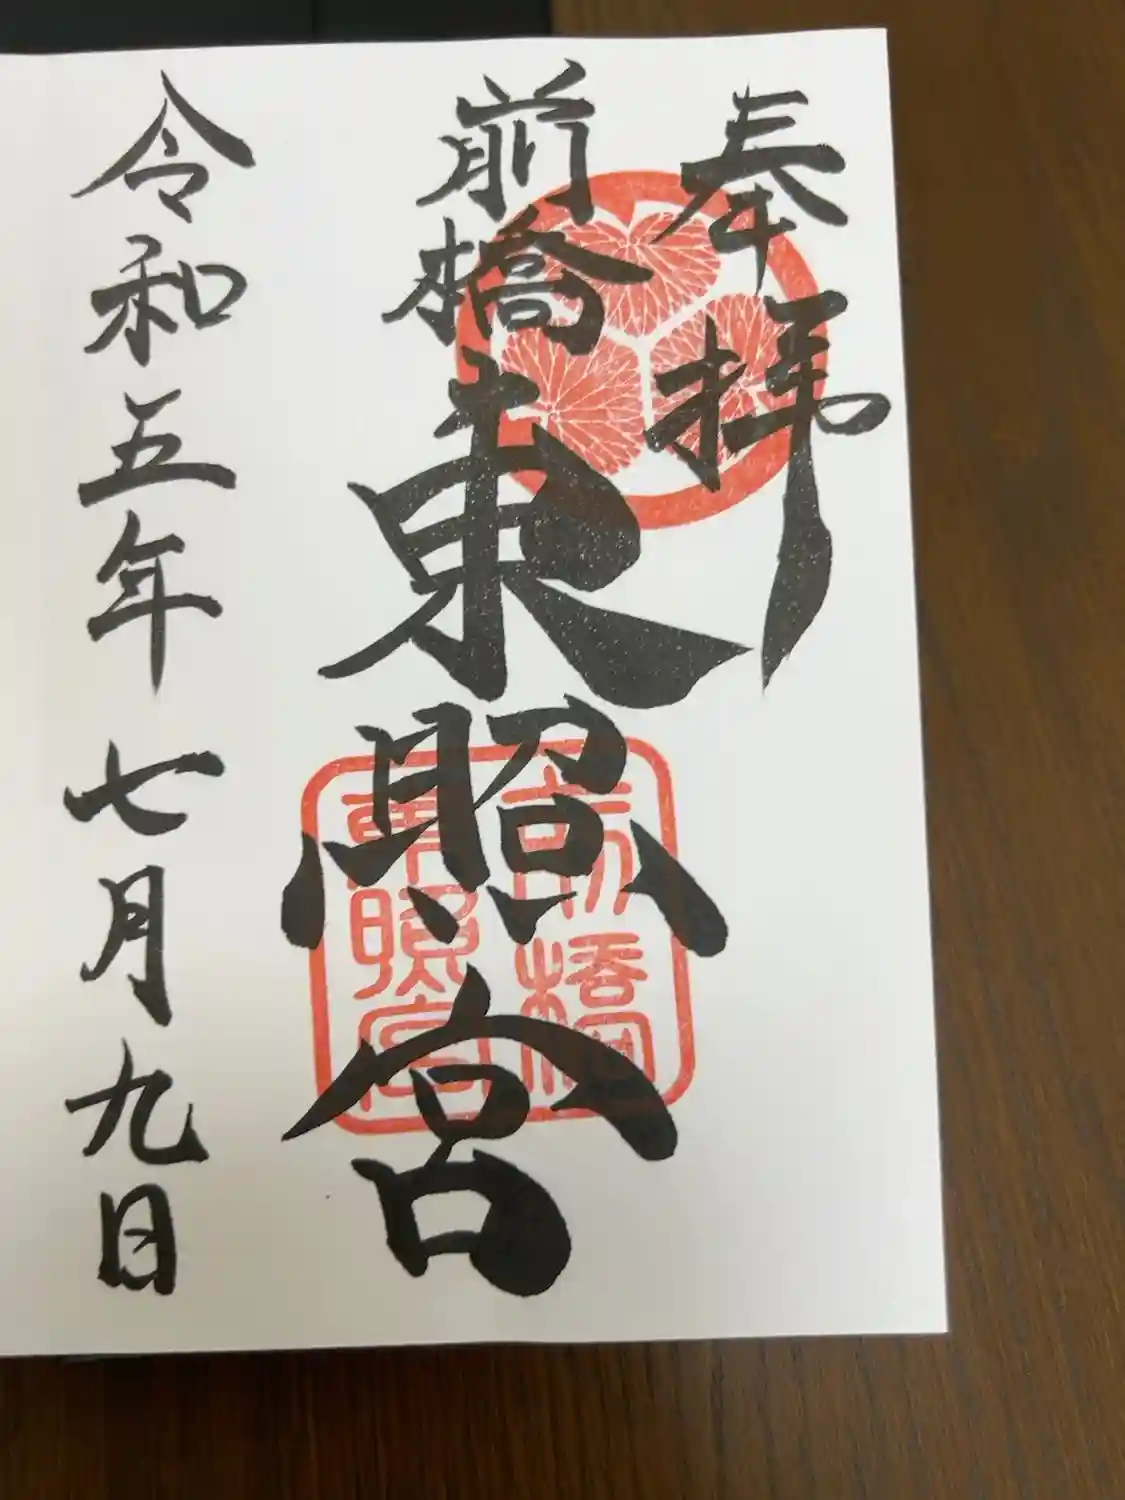 奉拝
前橋東照宮
令和五年七月九日
前橋
東照宮